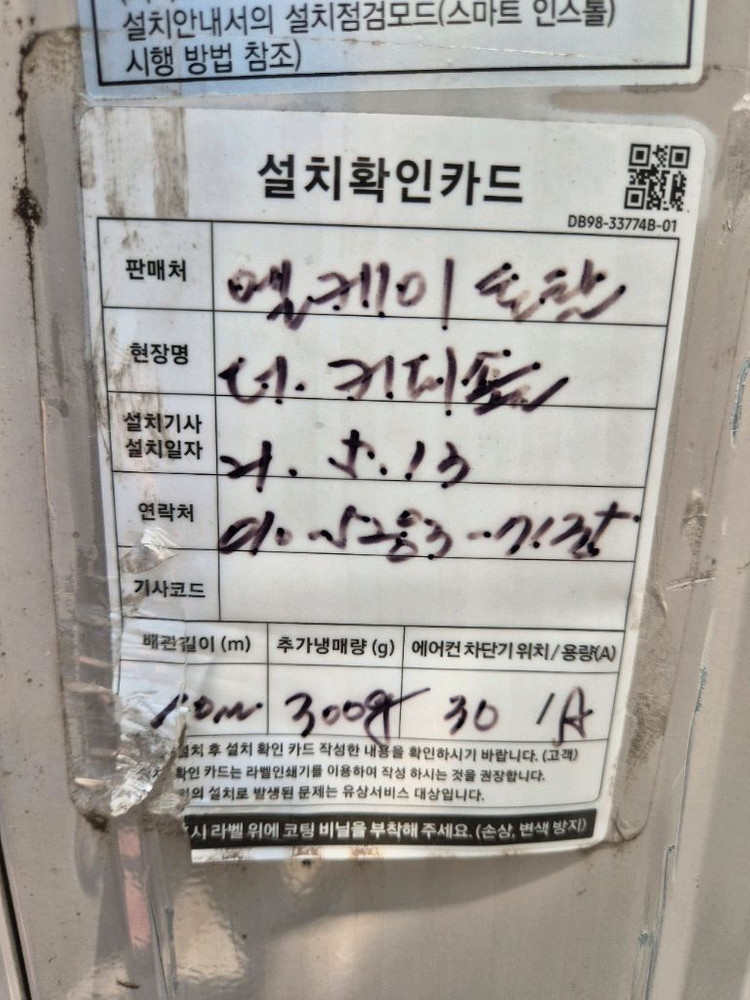 설치안내서의 설치점검모드(스마트 인스톨)
시행 방법 참조)
설치확인카드
DB98-33774B-01
판매처 엘케이
현장명 더.커피
설치기사
설치일자 21.5.13
연락처
기사코드
배관길이 (m) 추가냉매량 (g) 에어컨 차단기 위치/용량(A)
10m 300g 30 /A
설치 후 설치 확인 카드 작성한 내용을 확인하시기 바랍니다. (고객)
확인 카드는 라벨인쇄기를 이용하여 작성 하시는 것을 권장합니다.
의 설치로 발생된 문제는 유상서비스 대상입니다.
시 라벨 위에 코팅 비닐을 부착해 주세요. (손상, 변색 방지)